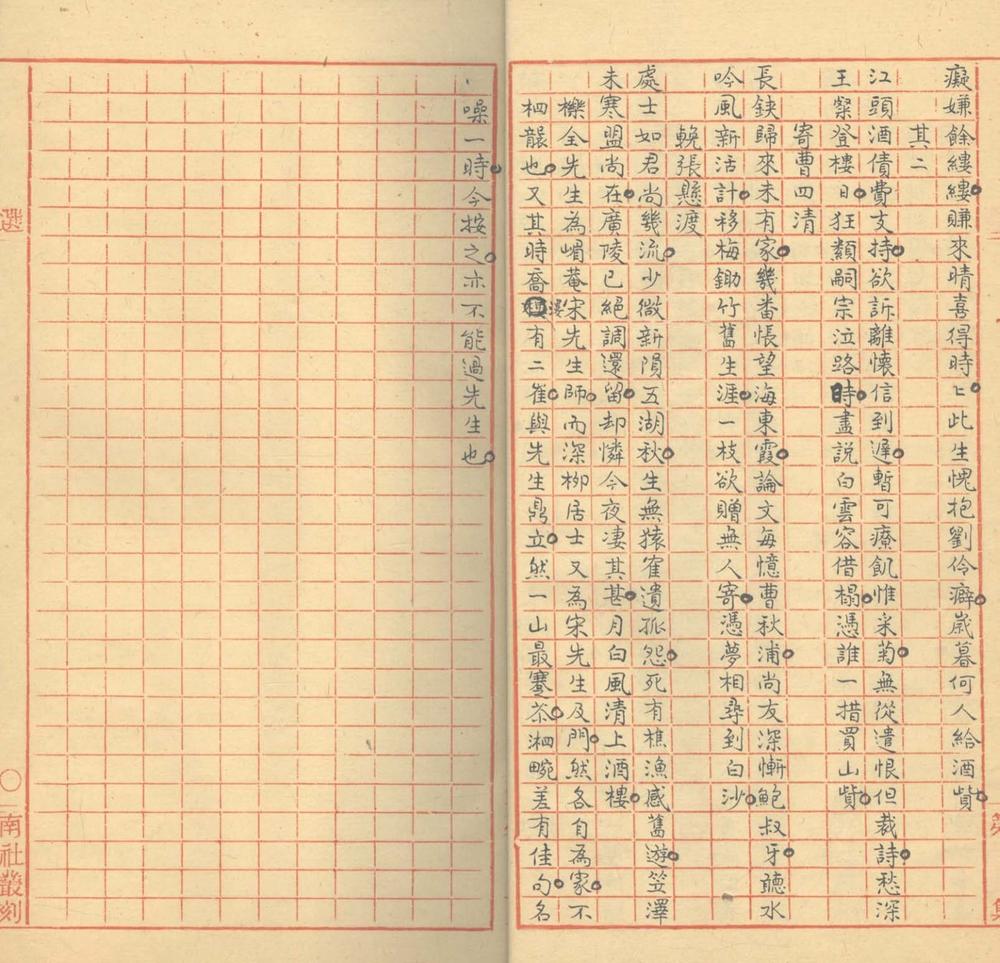 癡嫌餘縷縷賺來晴喜得時匕此生愧抱劉伶癖歲暮何人給酒貲
其二
江頭酒債費支持欲訴離懷信到遲暫可療飢惟采菊無從遣恨但裁詩愁深
王粲登樓日狂類嗣宗泣路時盡說白雲容借榻憑誰一措買山貲
寄曹四清
長鋏歸來未有家幾番悵望海東霞論文每憶曹秋浦尚友深慚鮑叔牙聽水
吟風新活計移梅鋤竹舊生涯一枝欲贈無人寄憑夢相尋到白沙
輓張懸渡
處士如君尚幾流少微新隕五湖秋生無猿寉遺孤怨死有樵漁感舊遊笠澤
未寒盟尚在廣陵已絕調還留却憐今夜凄其甚月白風清上酒樓
櫟全先生為嵋菴宋先生師而深栁居士又為宋先生及門然各自為家不
相襲也又其時喬有二崔與先生鼎立然一山最蹇茶湘畹差有佳句名
噪一時今按之亦不能過先生也
選
〇
南社叢刻